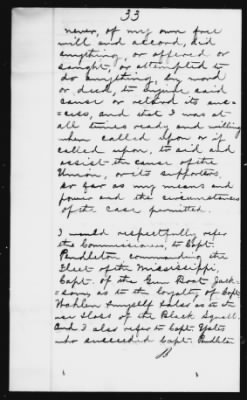 33
never, of my own free
will and accord, did
anything, or offered or
sought, or attempted to
do anything, by word
or deed, to injure said
cause or retard its suc-
=cess, and that I was at
all times ready and willing
when called upon or if
called upon, to aid and
assist the cause of the
Union, or its supporters
so far as my means and
power and the circumstances
of the case permitted.
I would respectfully refer
the Commissioners, to Capt.
Pendleton, commanding the
Fleet of the Mississippi,
Capt. of the Gun Boat Jack-
=son, as to the loyalty of Capt
and myself also as to the
use & loss of the Black Squall.
And I also refer to Capt. Yates
who succeeded Capt. Pendleton